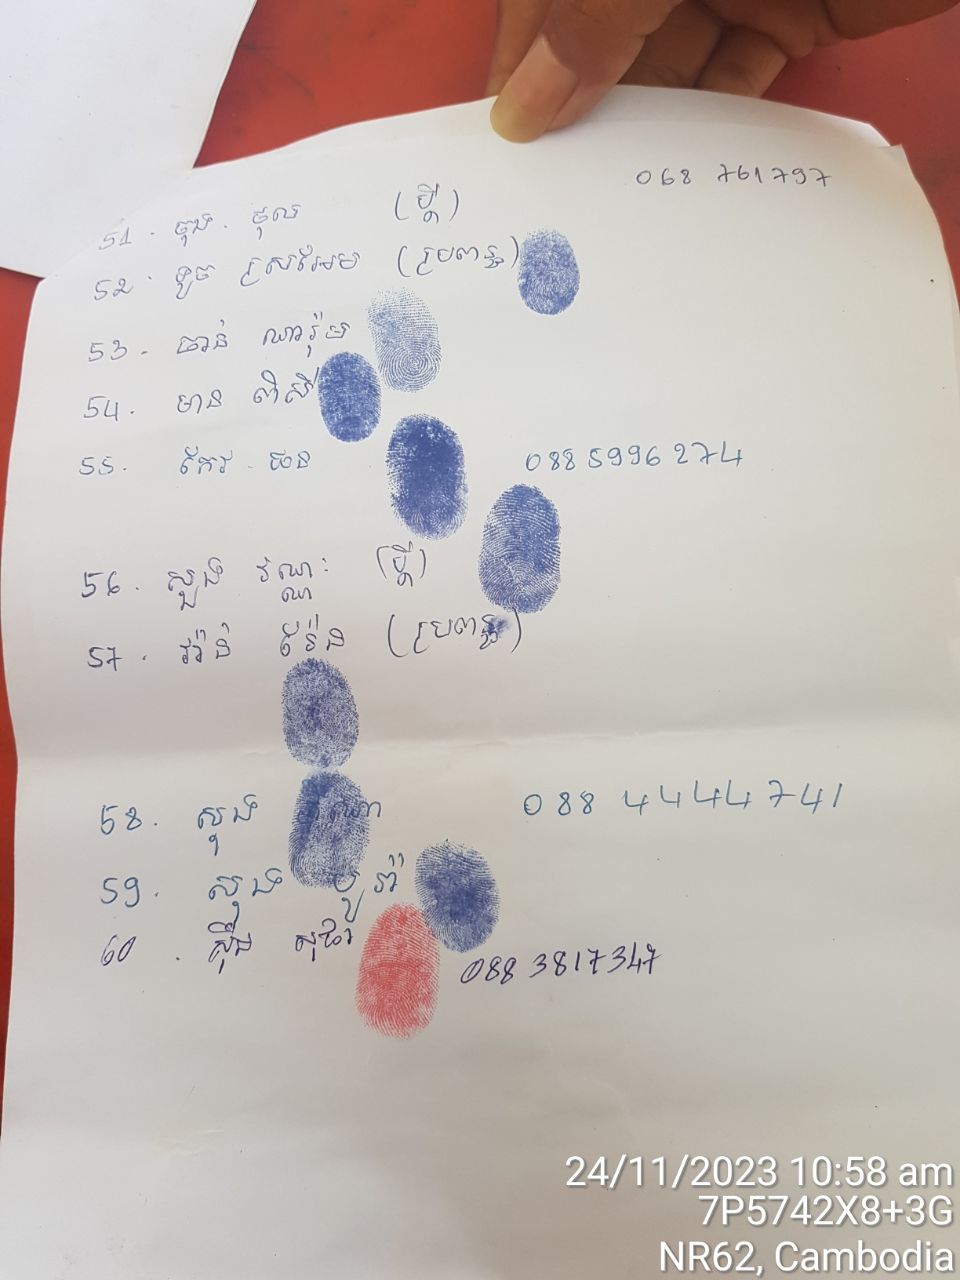 068 761797
51. ចុង. ថុល (ប្ដី)
52. ទូច ស្រីអែម (ប្រពន្ធ)
53. ចាន់ ណារ៉ុម
54. មាន ពិសី
55. កែវ ផន 0885996274
56. សួង វណ្ណៈ (ប្ដី)
57. វ៉ាន់ (ប្រពន្ធ)
58. សុង 088 4444741
59. សុង
60. ស៊ឹង 088 3817347
24/11/2023 10:58 am
7P5742X8+3G
NR62, Cambodia